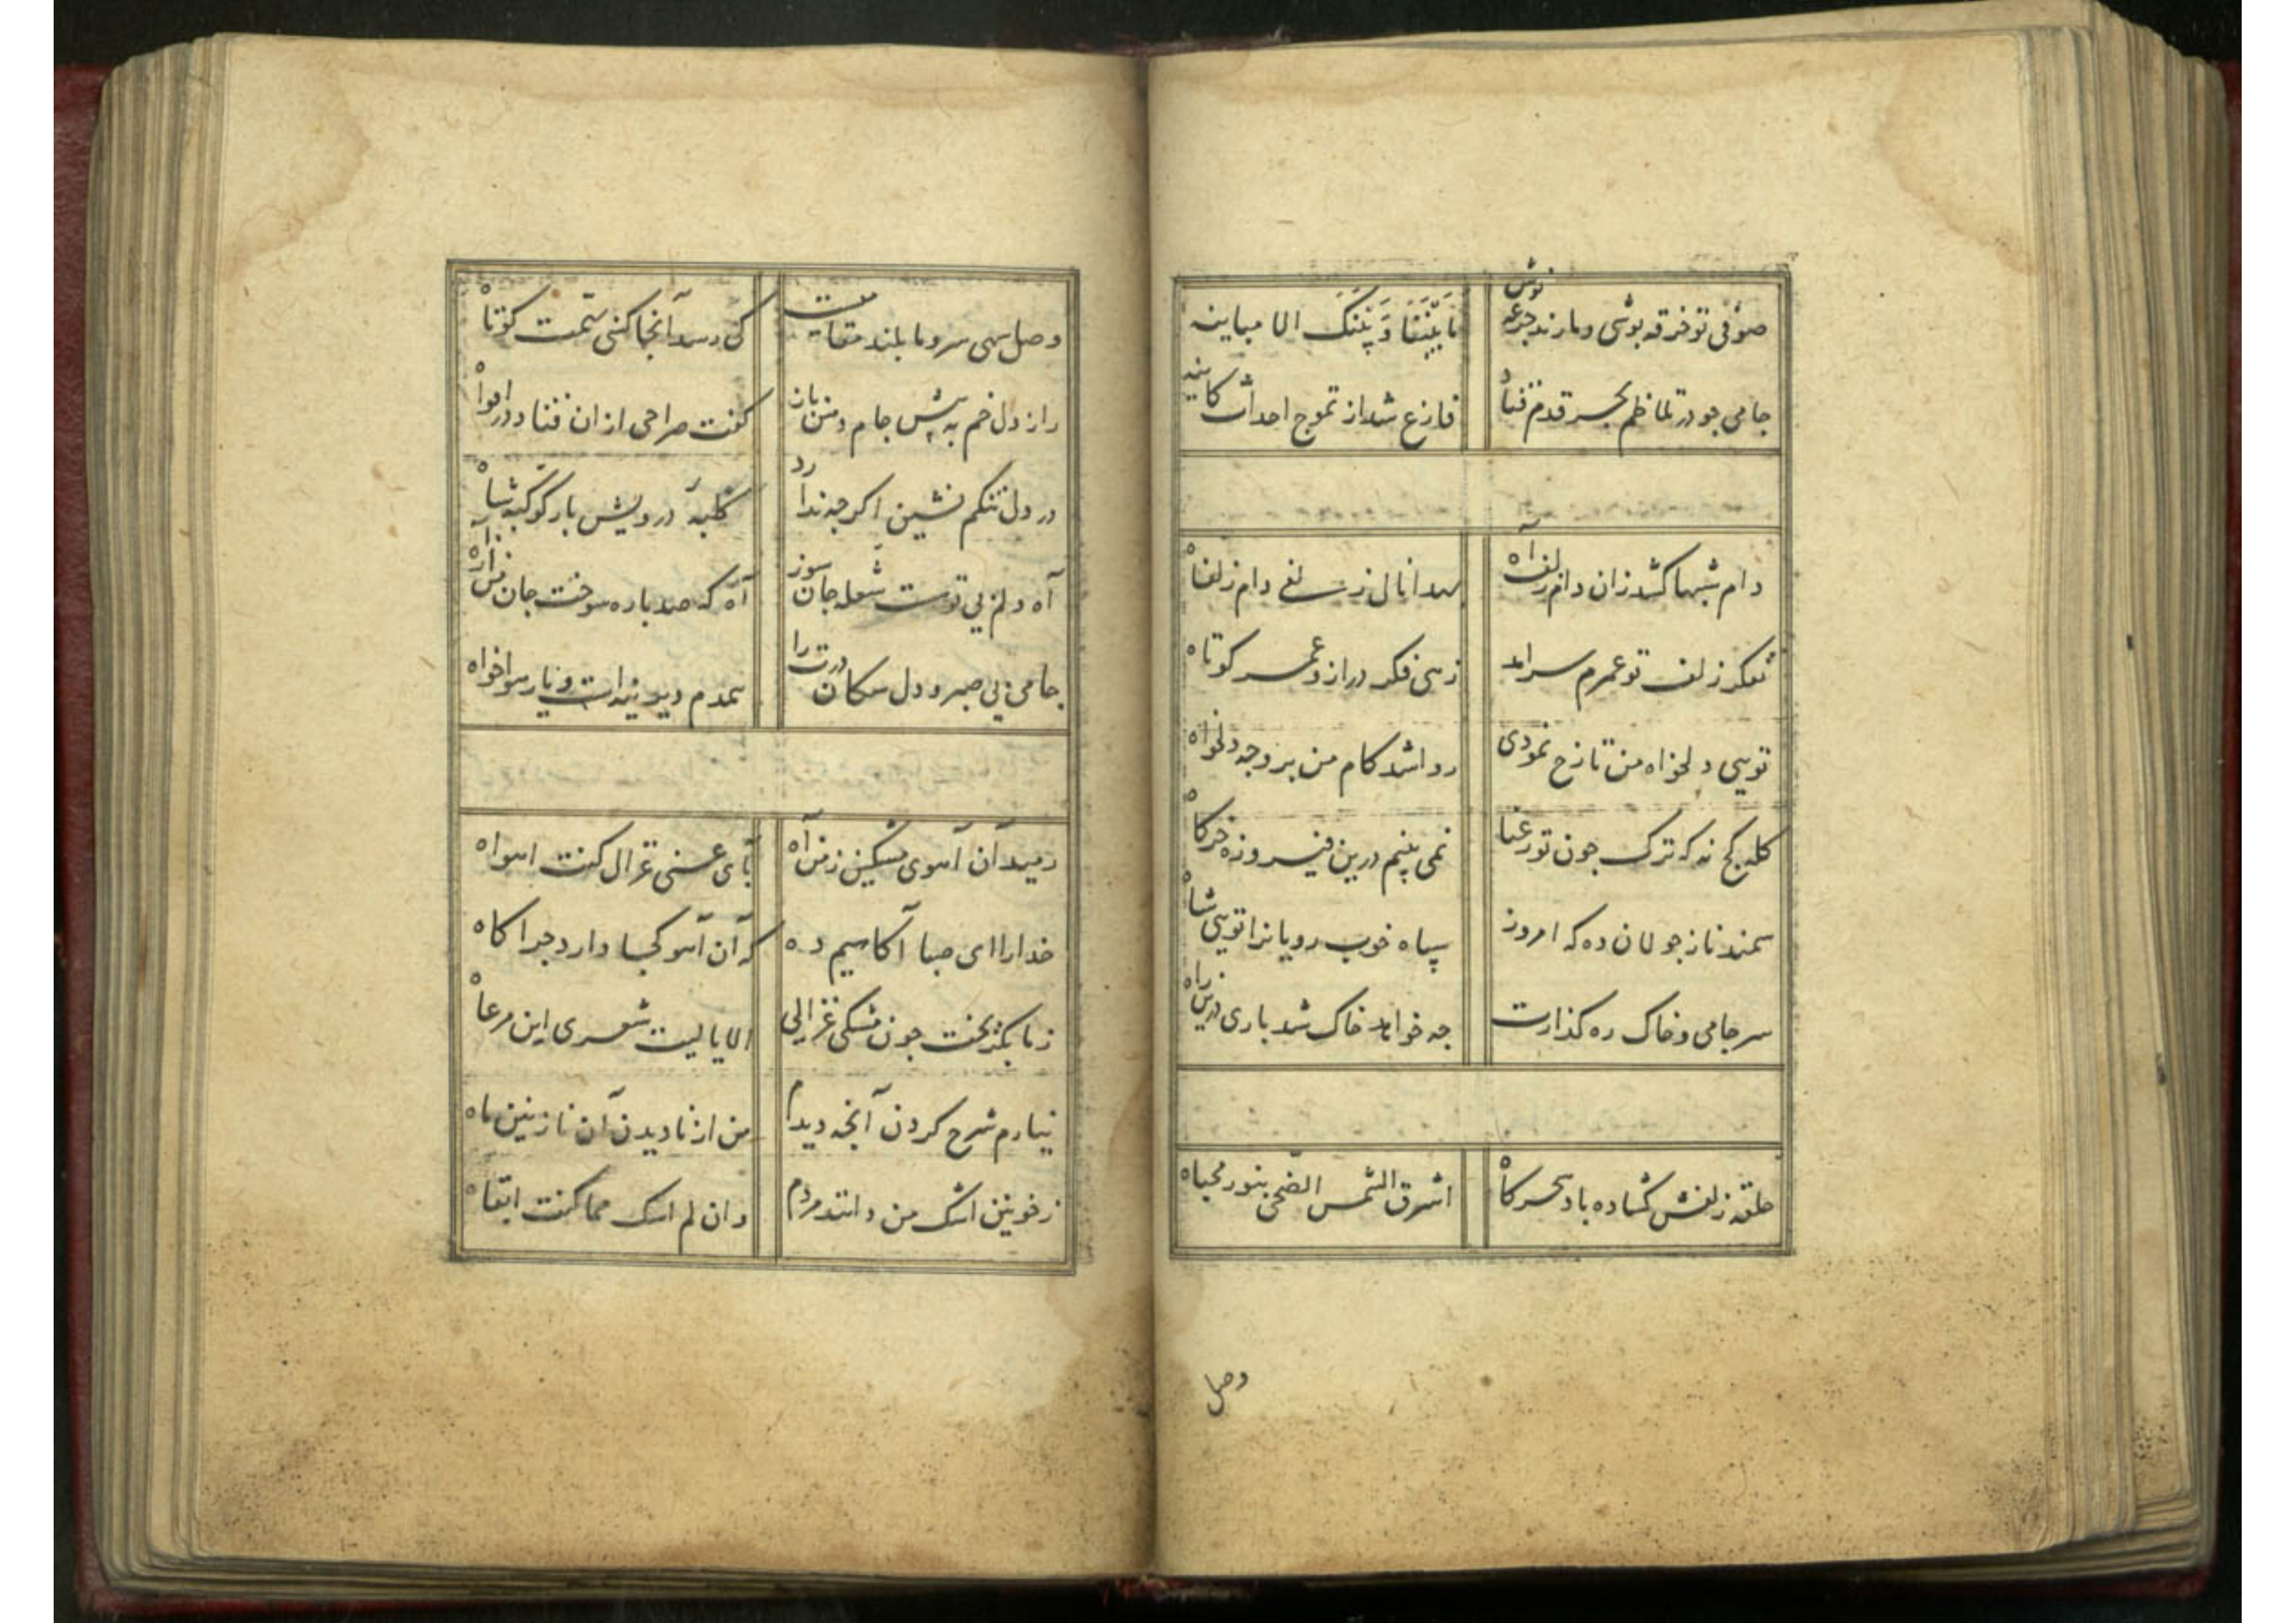 صوفی تو خرقه پوشی و ما رند جرعه نوش ما بَیْنَنا وَ بَیْنَکَ الا مباینه
جامی چو در تلاطم بحر قدم فتاد فارغ شد از تموج احداث کاینه
دام شبها کشد زان دام زلف آه دام زلفاه
بفکر زلف تو عمرم سرامد زهی فکر دراز و عمر کوتاه
تویی دلخواه من تا رخ نمودی روا شد کام من بر وجه دلخواه
کله کج نه که ترک چون تو رعنا نمی بینم درین فیروزه خرگاه
سمند ناز جولان ده که امروز سپاه خوب رویانرا تویی شاه
سر جامی و خاک ره کذارت چه خواهد خاک شد باری درین راه
حلقه زلفش کشاده باد سحرکاه اشرق الشمس الضحی بنور محیاه
وصل
وصل سهی سرو ما بلند مقامیست کی رسد آنجا کسی بهمت کوتاه
راز دل خم به پیش جام و من باز کفت صراحی از ان فتاد در افواه
در دل تنکم نشین اکرچه ندارد کلبهٔ درویش بار کوکبه شاه
آه دلم بی توست شعله جان سوز آه که صد باره سوخت جان من از آه
جامی بی صبر و دل سکان درت را همدم دیرینه است و یار هواخواه
رمید آن آهوی مشکین ز من آه بای عسی غزال کنت اهواه
خدارا ای صبا آکاهیم ده که آن آهو کجا دارد چراکاه
ز ما بکریخت چون مشکی غزالی الا یا لیت شعری این مرعاه
نیارم شرح کردن آنچه دیدم من از نادیدن آن نازنین ماه
ز خونین اشک من دانند مردم وان لم اشک مما کنت القاه